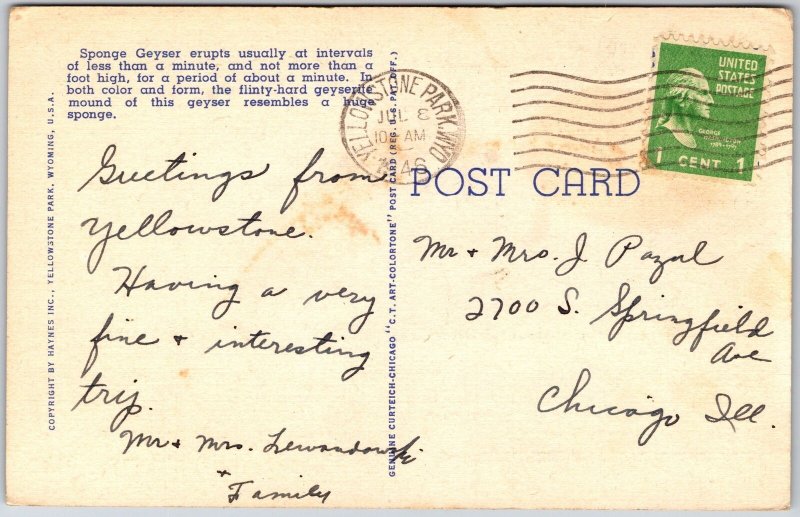 Sponge Geyser erupts usually at intervals
of less than a minute, and not more than a
foot high, for a period of about a minute. In
both color and form, the flinty-hard geyserite
mound of this geyser resembles a huge
sponge.
COPYRIGHT BY HAYNES INC., YELLOWSTONE PARK, WYOMING, U.S.A.
Greetings from
Yellowstone.
Having a very
fine + interesting
trip.
Mr + Mrs. Lewandowski
+
Family
GENUINE CURTEICH-CHICAGO "C.T. ART-COLORTONE" POST CARD (REG. U.S. PAT. OFF.)
YELLOWSTONE PARK, WYO
JUL 8
AM
POST CARD
UNITED
STATES
POSTAGE
GEORGE
1 CENT 1
Mr + Mrs. J
2700 S. Springfield
Ave
Chicago Ill.